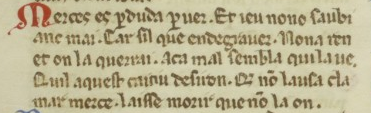 Merces es ꝑduda ꝑ uer. Et ieu nono saubi
anc mai. Car sil que endegrauer. Nona ren
et on la querrai. a ca mal sembla qui la ue.
Qui aquest caitiu desiron. Qe nō laisa cla
mar merce. laisse morir que nō la on.